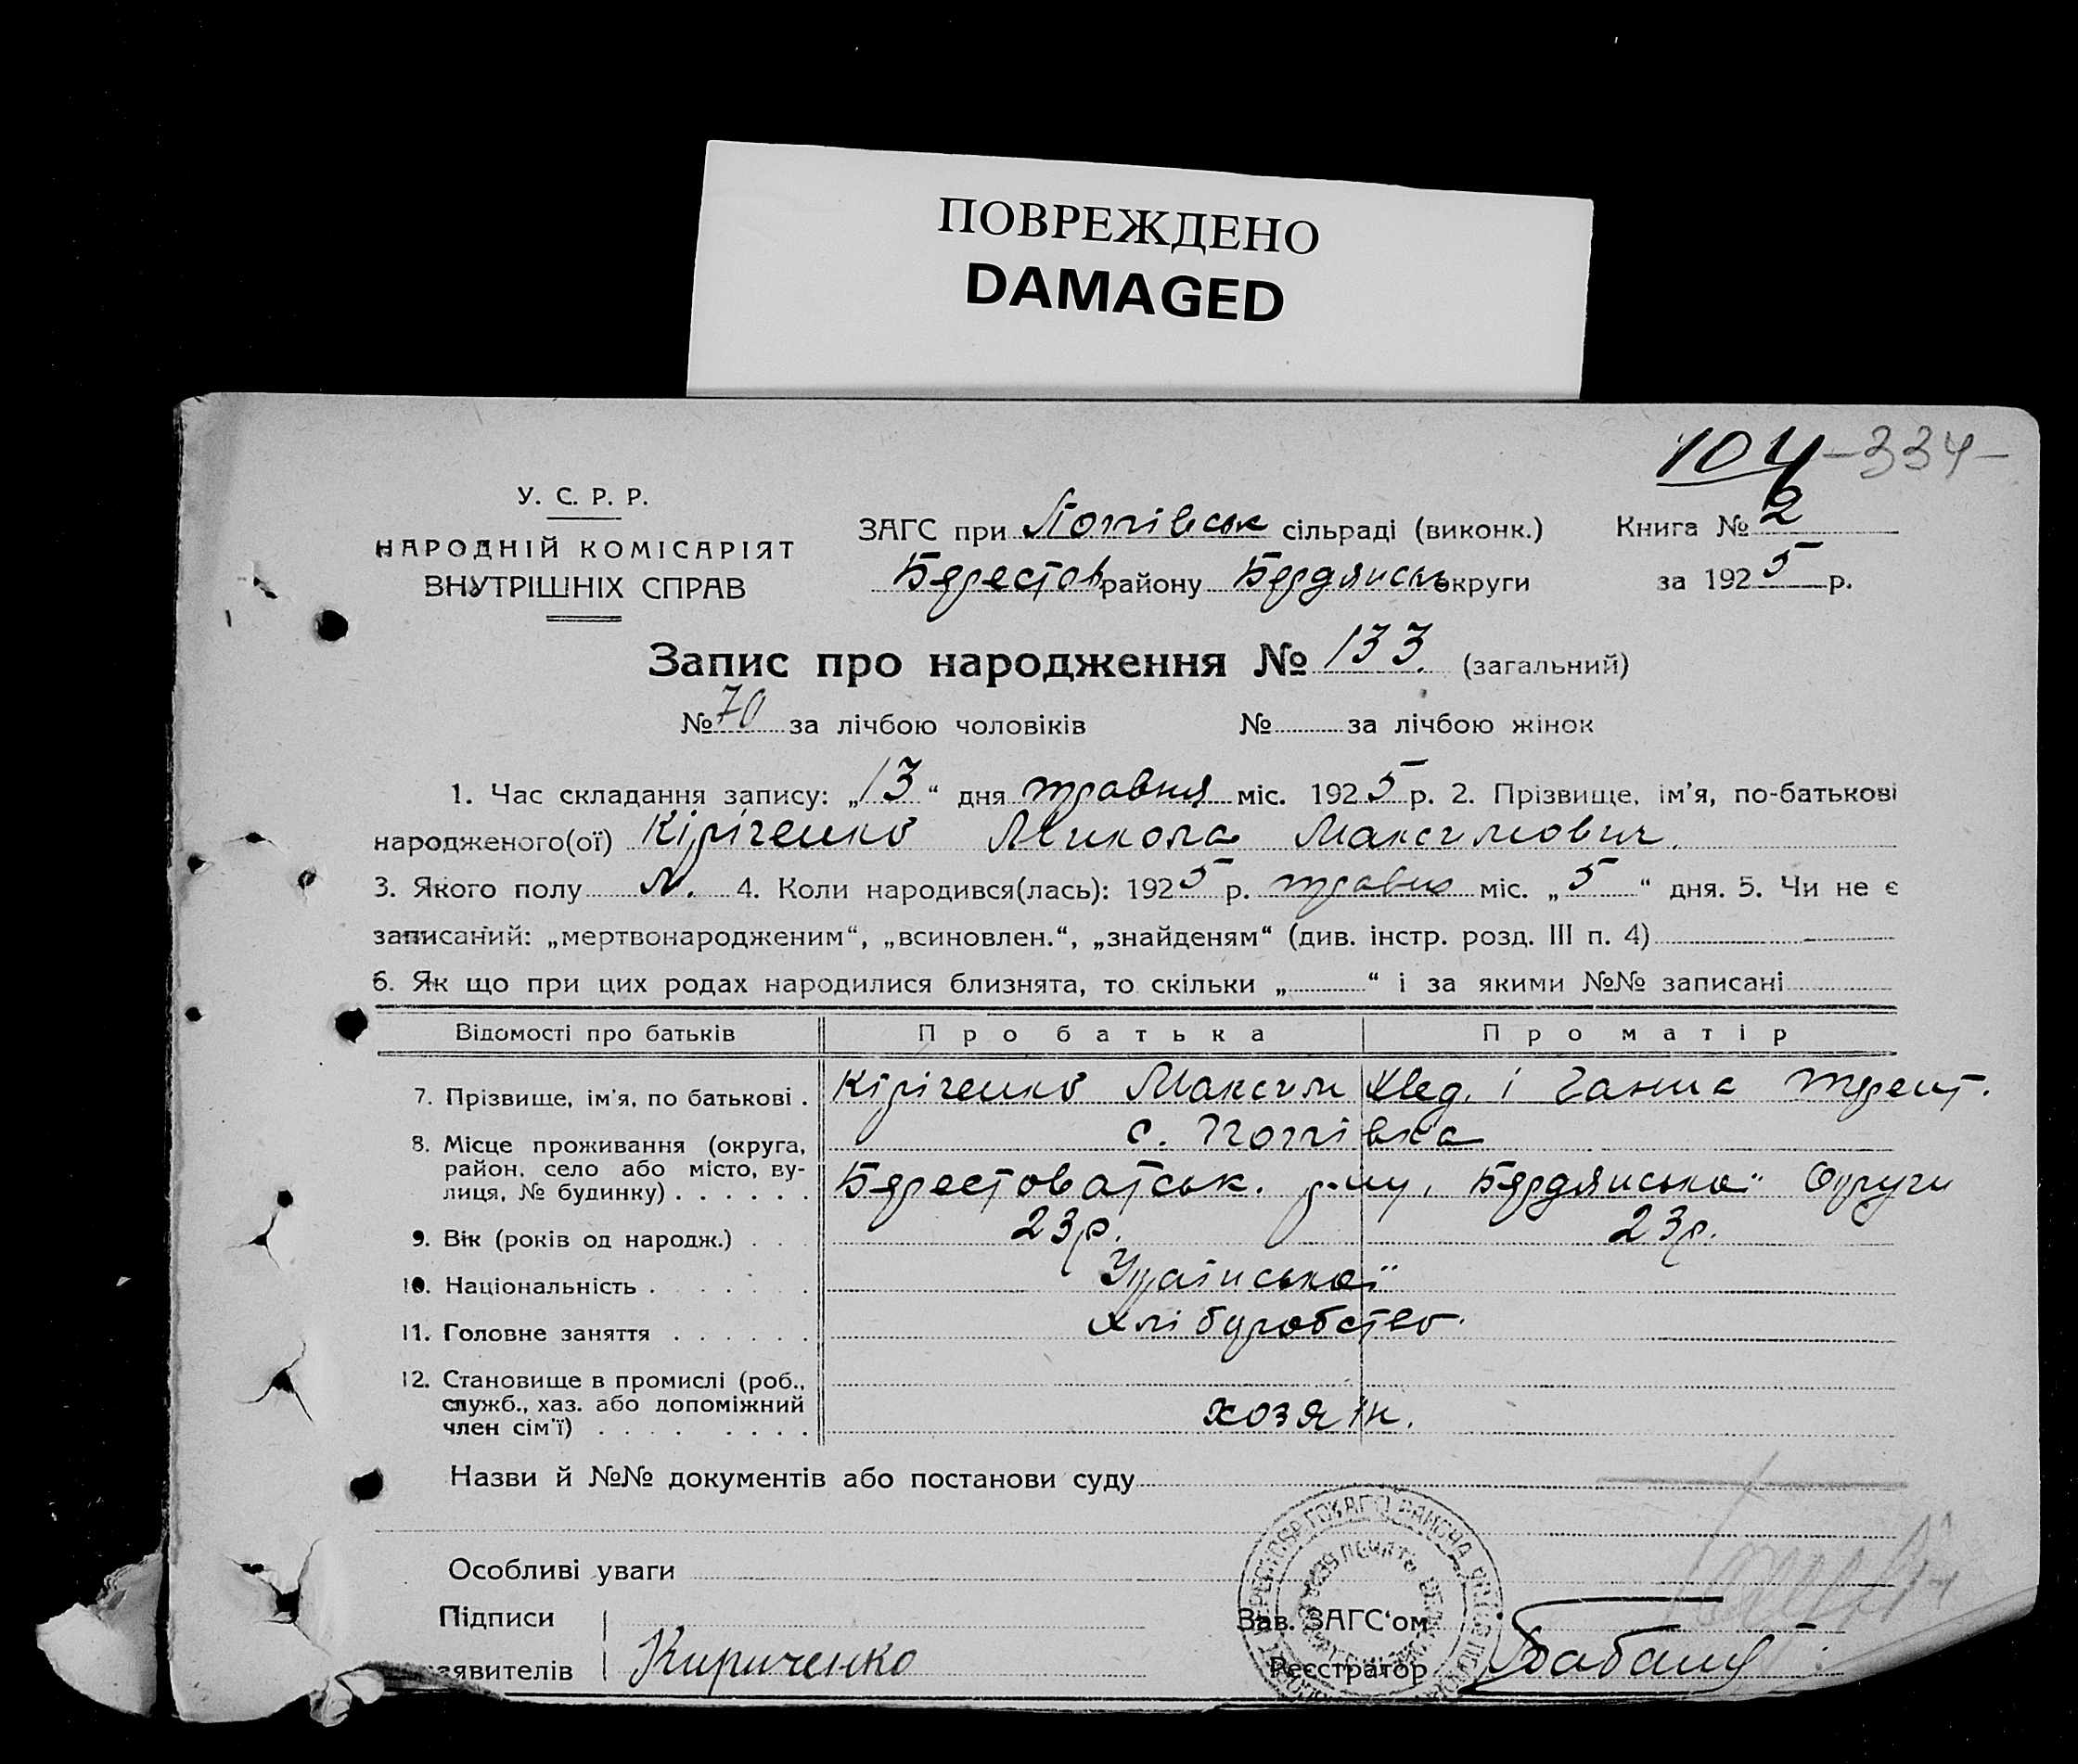 ПОВРЕЖДЕНО
DAMAGED
104 -334-
У. С. Р. Р.
НАРОДНІЙ КОМІСАРІЯТ
ВНУТРІШНІХ СПРАВ
ЗАГС при Попівськ сільраді (виконк.) Книга № 2
Берестов району Бердянськ округи за 1925 р.
Запис про народження № 133. (загальний)
№ 70 за лічбою чоловіків № за лічбою жінок
1. Час складання запису: „13“ дня травня міс. 1925 р. 2. Прізвище, ім’я, по-батькові
народженого(ої) Кіріченко Микола Максимович.
3. Якого полу М. 4. Коли народився(лась): 1925 р. травня міс. „5“ дня. 5. Чи не є
записаний: „мертвонародженим“, „всиновлен.“, „знайденям“ (див. інстр. розд. III п. 4)
6. Як що при цих родах народилися близнята, то скільки „ “ і за якими №№ записані
Відомості про батьків Про батька Про матір
7. Прізвище, ім’я, по батькові . Кіріченко Максим Хвед. і Ганна Терент.
8. Місце проживання (округа, с. Попівка
район, село або місто, ву-
лиця, № будинку) . . . . . . Берестоватськ. р-ну, Бердянської Округи
9. Вік (років од народж.) . . . 23р. 23р.
10. Національність . . . . . . Української
11. Головне заняття . . . . . . хліборобство.
12. Становище в промислі (роб.,
служб., хаз. або допоміжний хозяїн.
член сім’ї) . . . . . . . .
Назви й №№ документів або постанови суду
Особливі уваги
Підписи Зав. ЗАГС‘ом
заявителів Кириченко Реєстратор